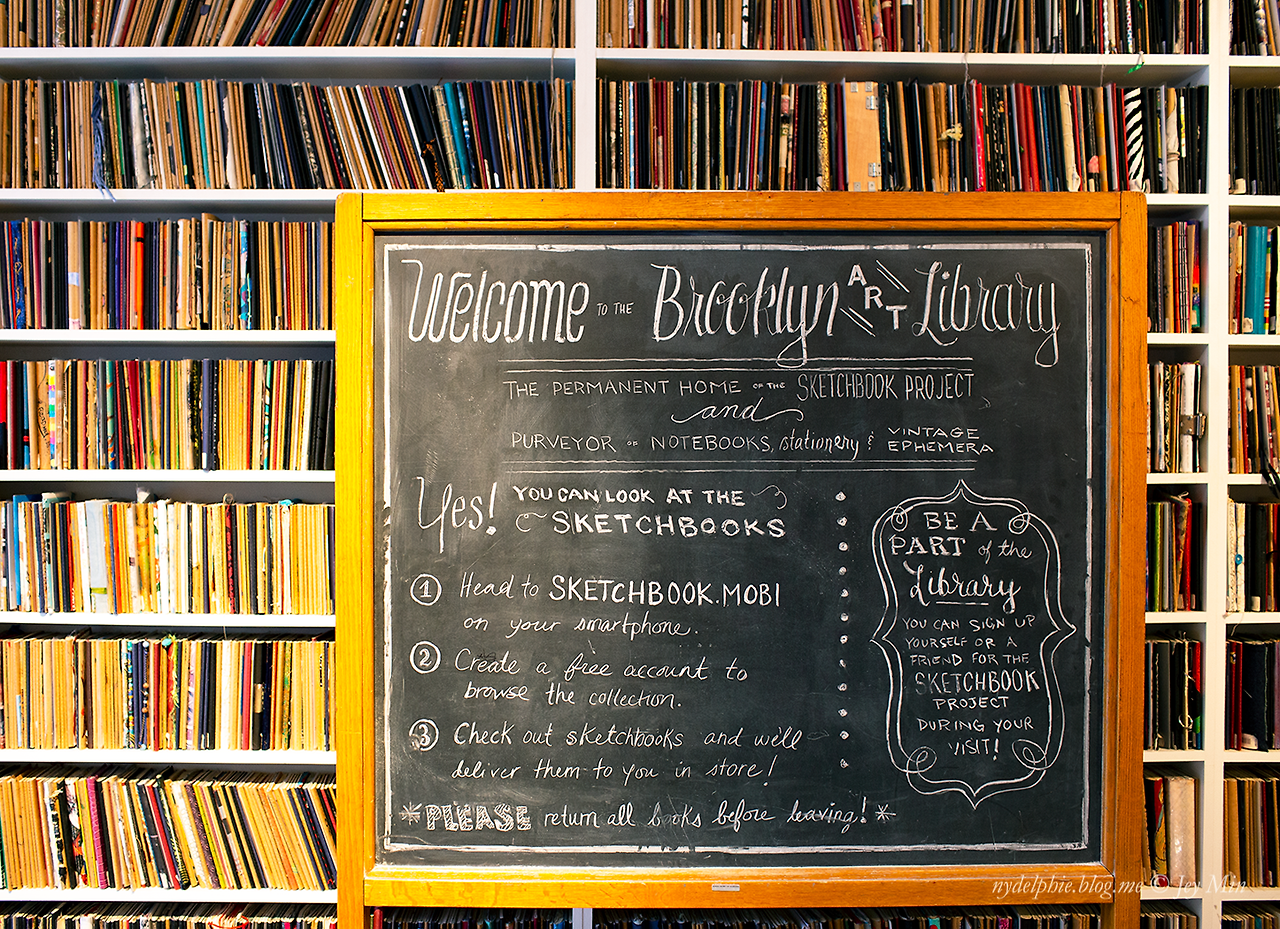 Welcome TO THE Brooklyn ART Library
THE PERMANENT HOME OF THE SKETCHBOOK PROJECT
and
PURVEYOR OF NOTEBOOKS, stationery & VINTAGE EPHEMERA
Yes! YOU CAN LOOK AT THE
SKETCHBOOKS
1 Head to SKETCHBOOK.MOBI
on your smartphone.
2 Create a free account to
browse the collection.
3 Check out sketchbooks and we'll
deliver them to you in store!
*PLEASE return all books before leaving!*
BE A
PART of the
Library
YOU CAN SIGN UP
YOURSELF OR A
FRIEND FOR THE
SKETCHBOOK
PROJECT
DURING YOUR
VISIT!
nydelphie.blog.me © Jey Min